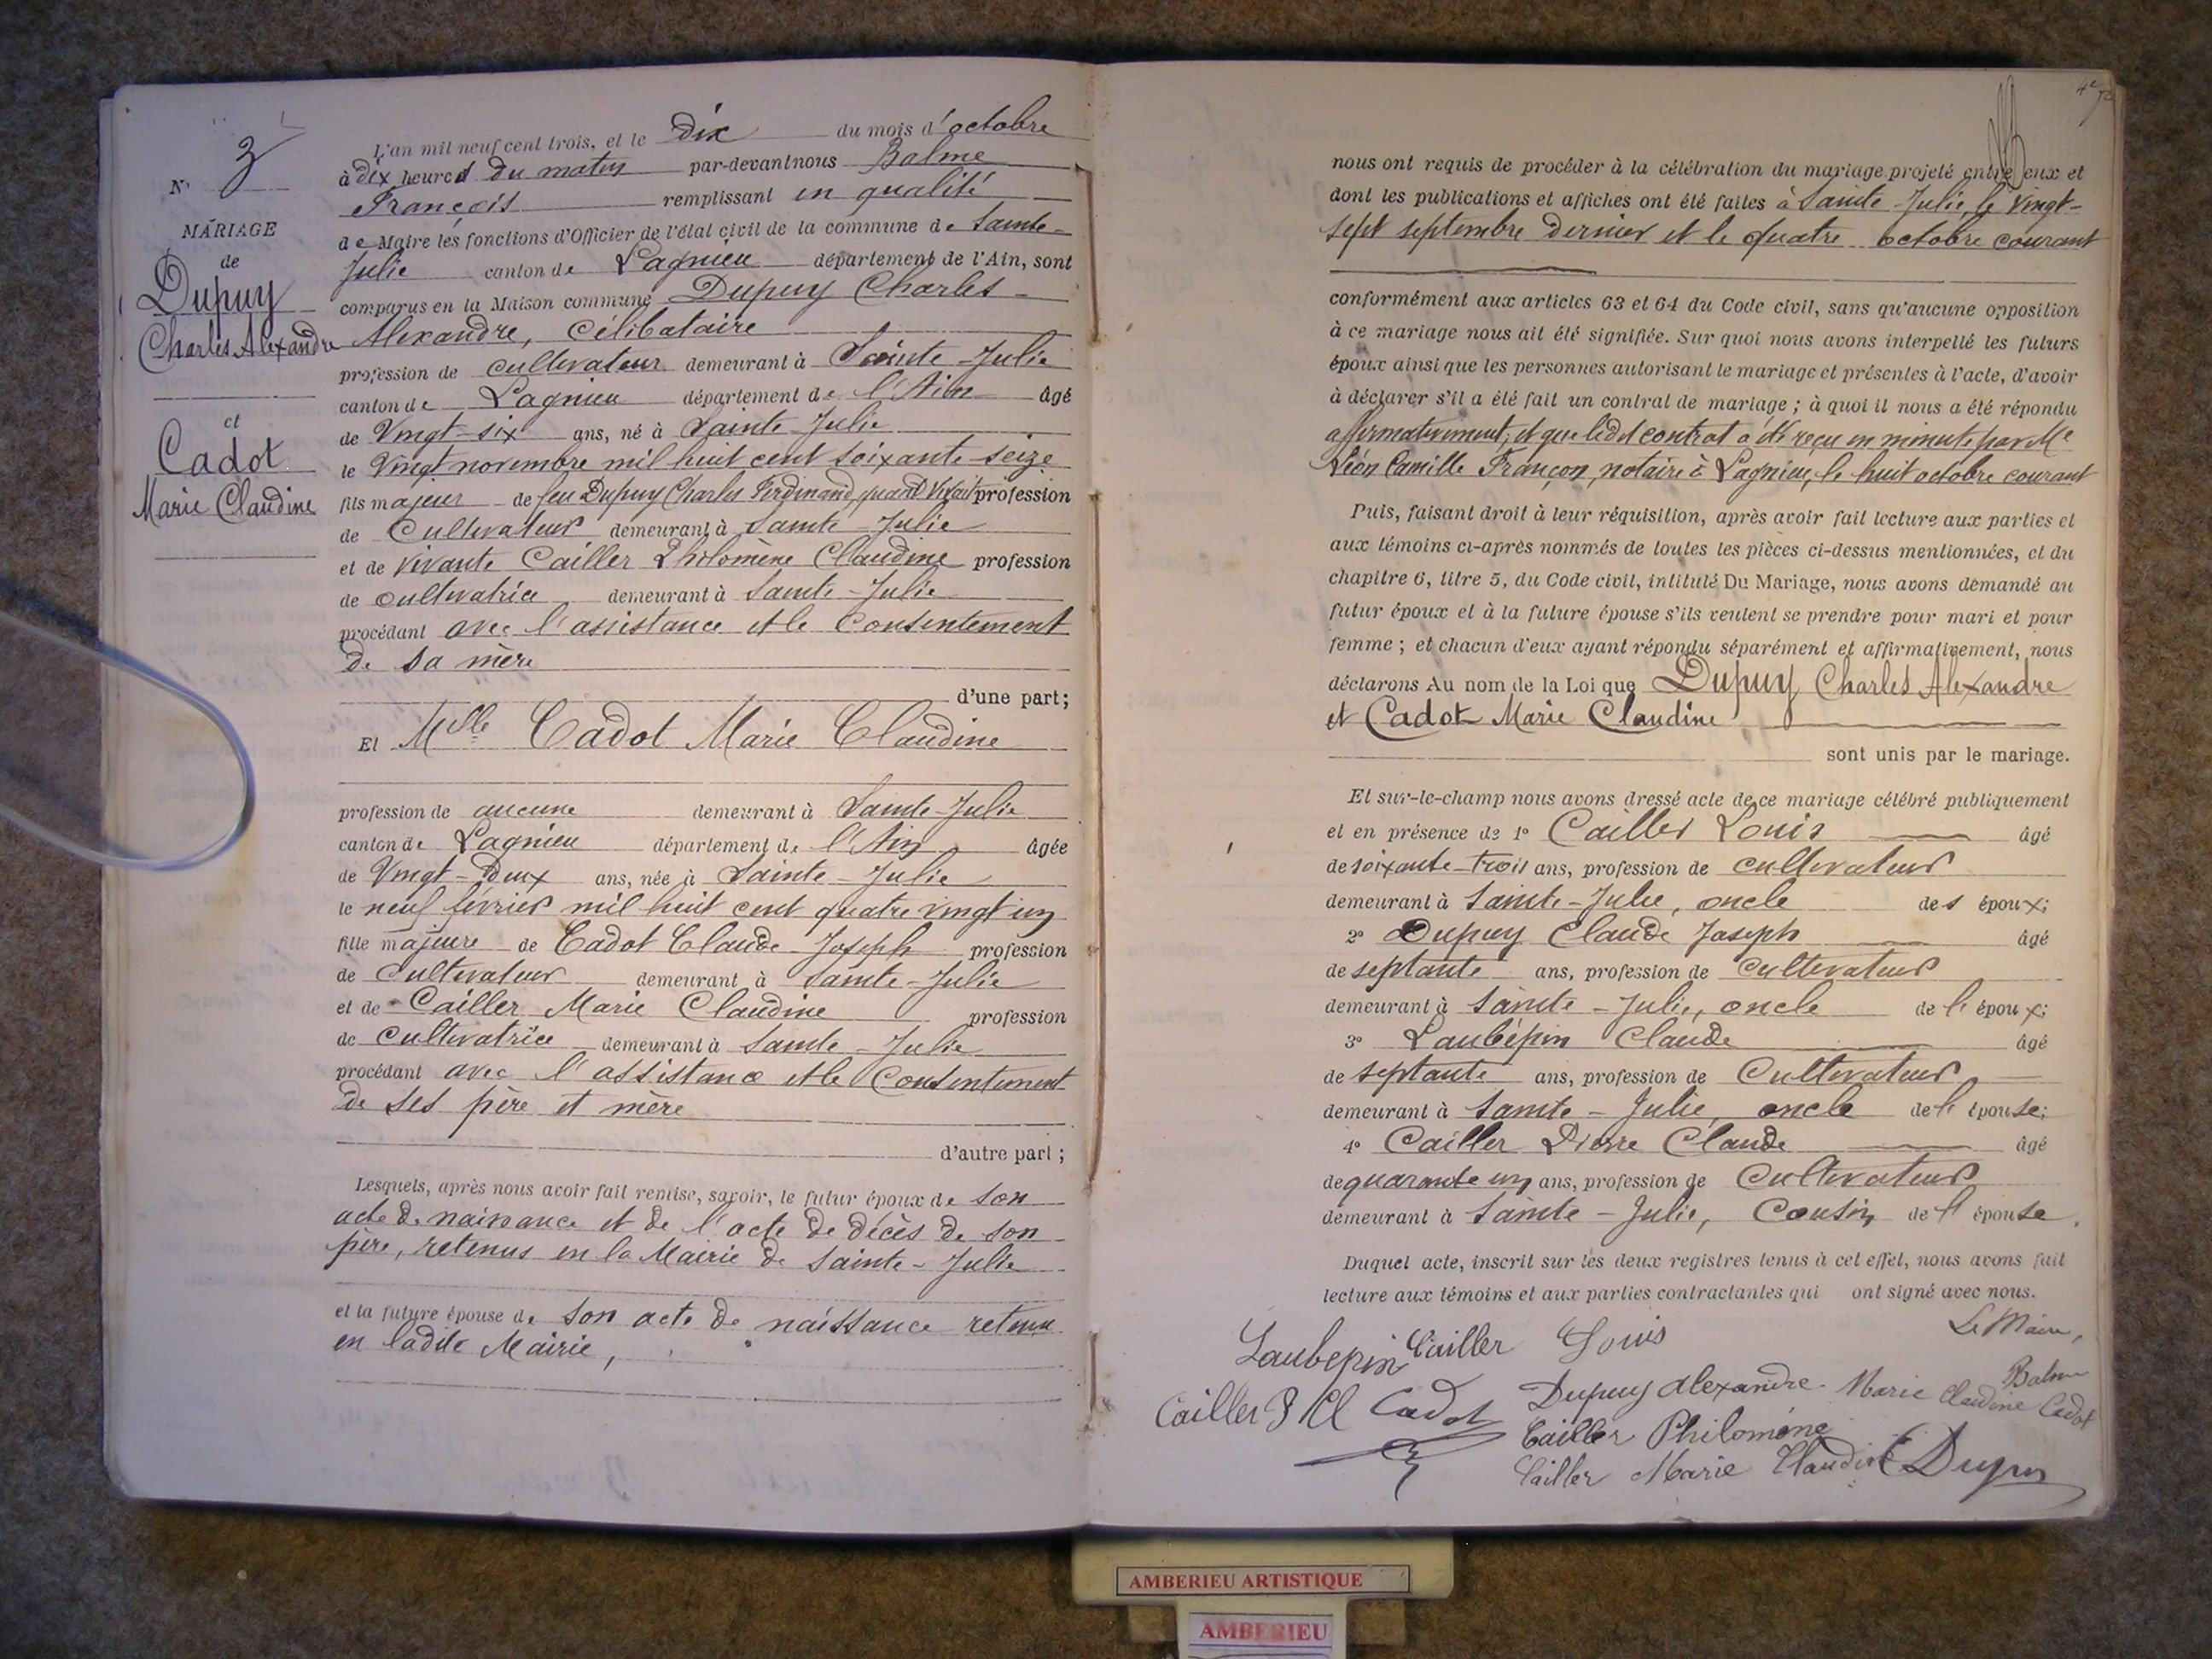 N° 3
MARIAGE
de
Dupuy
Charles Alexandre
et
Cadot
Marie Claudine
L'an mil neuf cent trois, et le dix du mois d'octobre
à dix heures du matin par-devant nous Balme
François remplissant en qualité
de Maire les fonctions d'Officier de l'état civil de la commune de Sainte-
Julie canton de Lagnieu département de l'Ain, sont
comparus en la Maison commune Dupuy Charles-
Alexandre, célibataire
profession de cultivateur demeurant à Sainte-Julie
canton de Lagnieu département de l'Ain âgé
de Vingt-six ans, né à Sainte-Julie
le Vingt novembre mil huit cent soixante-seize
fils majeur de feu Dupuy Charles Ferdinand, quand vivait profession
de Cultivateur demeurant à Sainte-Julie
et de vivante Cailler Philomène Claudine profession
de cultivatrice demeurant à Sainte-Julie
procédant avec l'assistance et le Consentement
de sa mère
d'une part;
Et Melle Cadot Marie Claudine
profession de aucune demeurant à Sainte-Julie
canton de Lagnieu département de l'Ain âgée
de Vingt-deux ans, née à Sainte-Julie
le neuf février mil huit cent quatre vingt un
fille majeure de Cadot Claude Joseph profession
de Cultivateur demeurant à Sainte-Julie
et de Cailler Marie Claudine profession
de Cultivatrice demeurant à Sainte-Julie
procédant avec l'assistance et le Consentement
de ses père et mère
d'autre part;
Lesquels, après nous avoir fait remise, savoir, le futur époux de son
acte de naissance et de l'acte de décès de son
père, retenus en la Mairie de Sainte-Julie
et la future épouse de son acte de naissance retenu
en ladite Mairie,
nous ont requis de procéder à la célébration du mariage projeté entre eux et
dont les publications et affiches ont été faites à Sainte-Julie, le Vingt-
sept septembre dernier et le quatre octobre courant
conformément aux articles 63 et 64 du Code civil, sans qu'aucune opposition
à ce mariage nous ait été signifiée. Sur quoi nous avons interpellé les futurs
époux ainsi que les personnes autorisant le mariage et présentes à l'acte, d'avoir
à déclarer s'il a été fait un contrat de mariage; à quoi il nous a été répondu
affirmativement, et que ledit contrat a été reçu en minute par Me
Léon Camille Françon, notaire à Lagnieu, le huit octobre courant
Puis, faisant droit à leur réquisition, après avoir fait lecture aux parties et
aux témoins ci-après nommés de toutes les pièces ci-dessus mentionnées, et du
chapitre 6, titre 5, du Code civil, intitulé Du Mariage, nous avons demandé au
futur époux et à la future épouse s'ils veulent se prendre pour mari et pour
femme; et chacun d'eux ayant répondu séparément et affirmativement, nous
déclarons Au nom de la Loi que Dupuy Charles Alexandre
et Cadot Marie Claudine
sont unis par le mariage.
Et sur-le-champ nous avons dressé acte de ce mariage célébré publiquement
et en présence de 1° Cailler Louis âgé
de soixante-trois ans, profession de cultivateur
demeurant à Sainte-Julie, oncle des époux;
2° Dupuy Claude Joseph âgé
de septante ans, profession de Cultivateur
demeurant à Sainte-Julie, oncle de l'époux;
3° Laubépin Claude âgé
de septante ans, profession de Cultivateur
demeurant à Sainte-Julie, oncle de l'épouse;
4° Cailler Pierre Claude âgé
de quarante un ans, profession de Cultivateur
demeurant à Sainte-Julie, Cousin de l'épouse.
Duquel acte, inscrit sur les deux registres tenus à cet effet, nous avons fait
lecture aux témoins et aux parties contractantes qui ont signé avec nous.
Le Maire,
Balme
Laubepin Cailler Louis
Dupuy Alexandre Marie Claudine Cadot
Cailler P Cl Cadot
Cailler Philomène
Cailler Marie Claudine Dupuy
AMBERIEU ARTISTIQUE
AMBERIEU